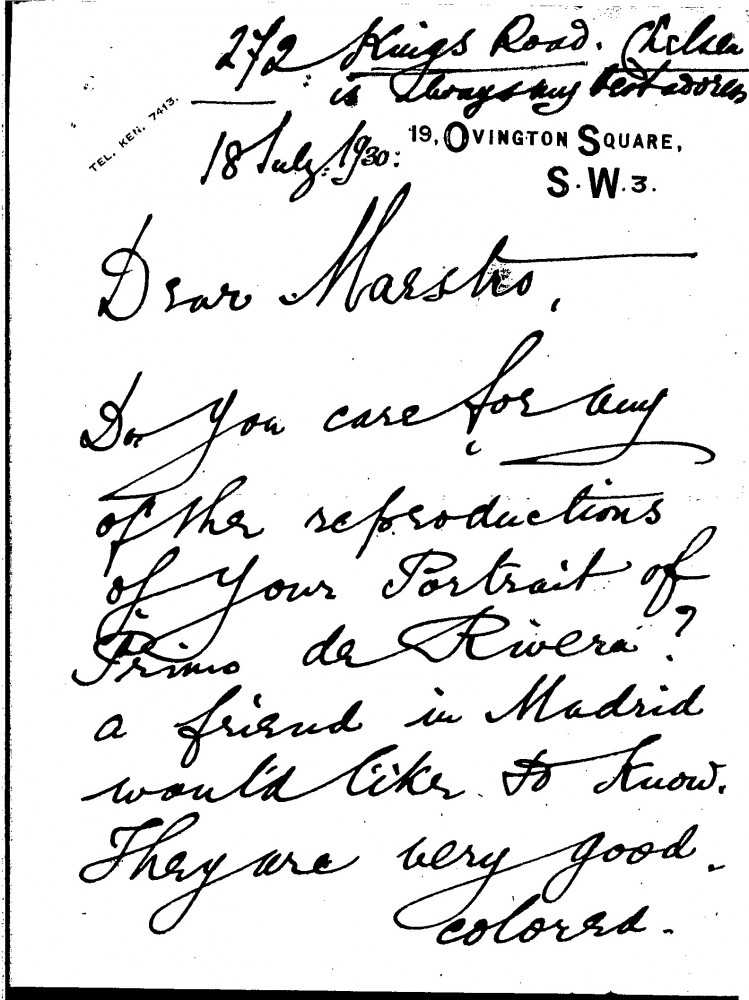 272 Kings Road. Chelsea
is always my best address
TEL. KEN. 7413.
19, OVINGTON SQUARE,
S.W.3.
18 July: 1930:
Dear Maestro,
Do you care for any
of the reproductions
of your Portrait of
Primo de Rivera?
a friend in Madrid
would like to know.
They are very good.
colored.